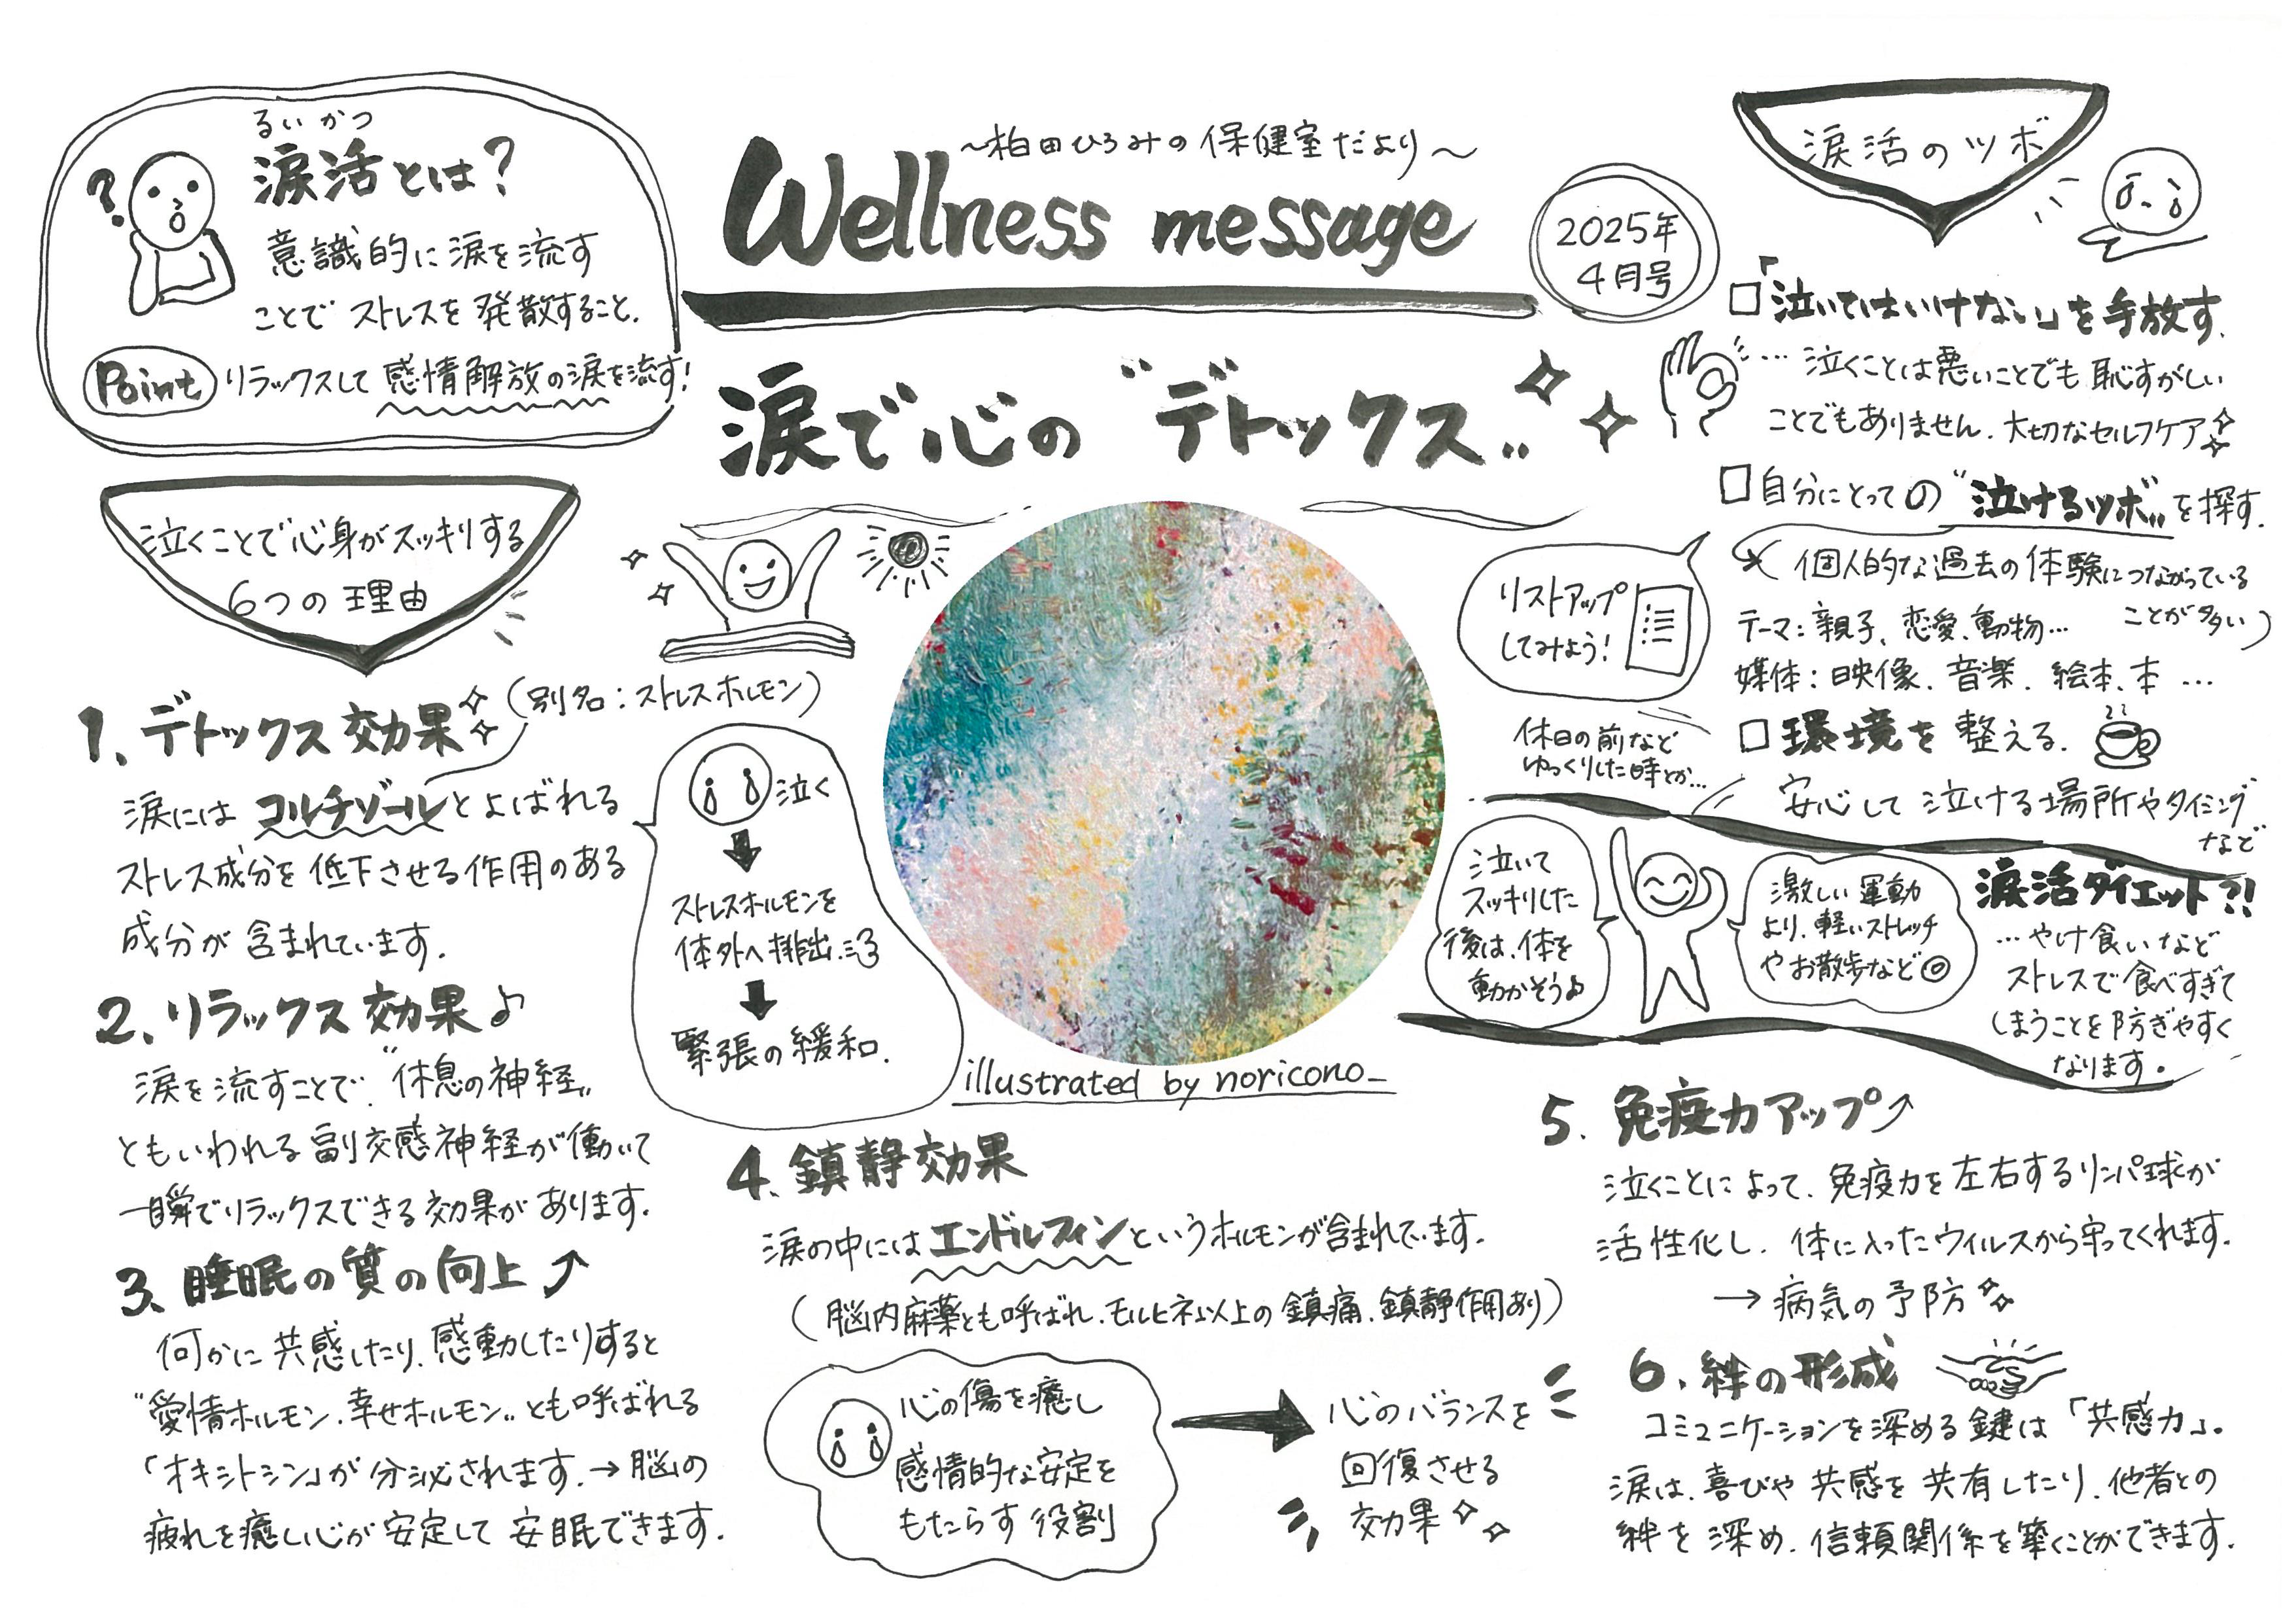 るいかつ
涙活とは?
?
意識的に涙を流す
ことでストレスを発散すること.
Point リラックスして感情解放の涙を流す!
~柏田ひろみの保健室だより~
Wellness message
2025年
4月号
涙で心の"デトックス"
泣くことで心身がスッキリする
6つの理由
1. デトックス効果
(別名:ストレスホルモン)
涙にはコルチゾールとよばれる
ストレス成分を低下させる作用のある
成分が含まれています.
泣く
ストレスホルモンを
体外へ排出
緊張の緩和.
2. リラックス効果♪
涙を流すことで"休息の神経"
ともいわれる副交感神経が働いて
一瞬でリラックスできる効果があります.
3. 睡眠の質の向上
何かに共感したり、感動したりすると
"愛情ホルモン.幸せホルモン"とも呼ばれる
「オキシトシン」が分泌されます.→脳の
疲れを癒し心が安定して安眠できます.
illustrated by noricono_
4. 鎮静効果
涙の中にはエンドルフィンというホルモンが含まれています.
(脳内麻薬とも呼ばれ、モルヒネ以上の鎮痛、鎮静作用あり)
心の傷を癒し
感情的な安定を
もたらす役割
心のバランスを
回復させる
効果
涙活のツボ
□「泣いてはいけない」を手放す.
… 泣くことは悪いことでも恥ずかしい
ことでもありません.大切なセルフケア
□自分にとっての"泣けるツボ"を探す.
(個人的な過去の体験につながっている
ことが多い)
リストアップ
してみよう!
テーマ:親子、恋愛、動物…
媒体:映像、音楽、絵本、本 …
□環境を整える.
休日の前など
ゆっくりした時とか…
安心して泣ける場所やタイミング
など
泣いて
スッキリした
後は、体を
動かそう♪
激しい運動
より、軽いストレッチ
やお散歩など◎
涙活ダイエット?!
…やけ食いなど
ストレスで食べすぎて
しまうことを防ぎやすく
なります。
5. 免疫力アップ
泣くことによって、免疫力を左右するリンパ球が
活性化し、体に入ったウィルスから守ってくれます.
→ 病気の予防
6. 絆の形成
コミュニケーションを深める鍵は「共感力」。
涙は、喜びや共感を共有したり、他者との
絆を深め、信頼関係を築くことができます.